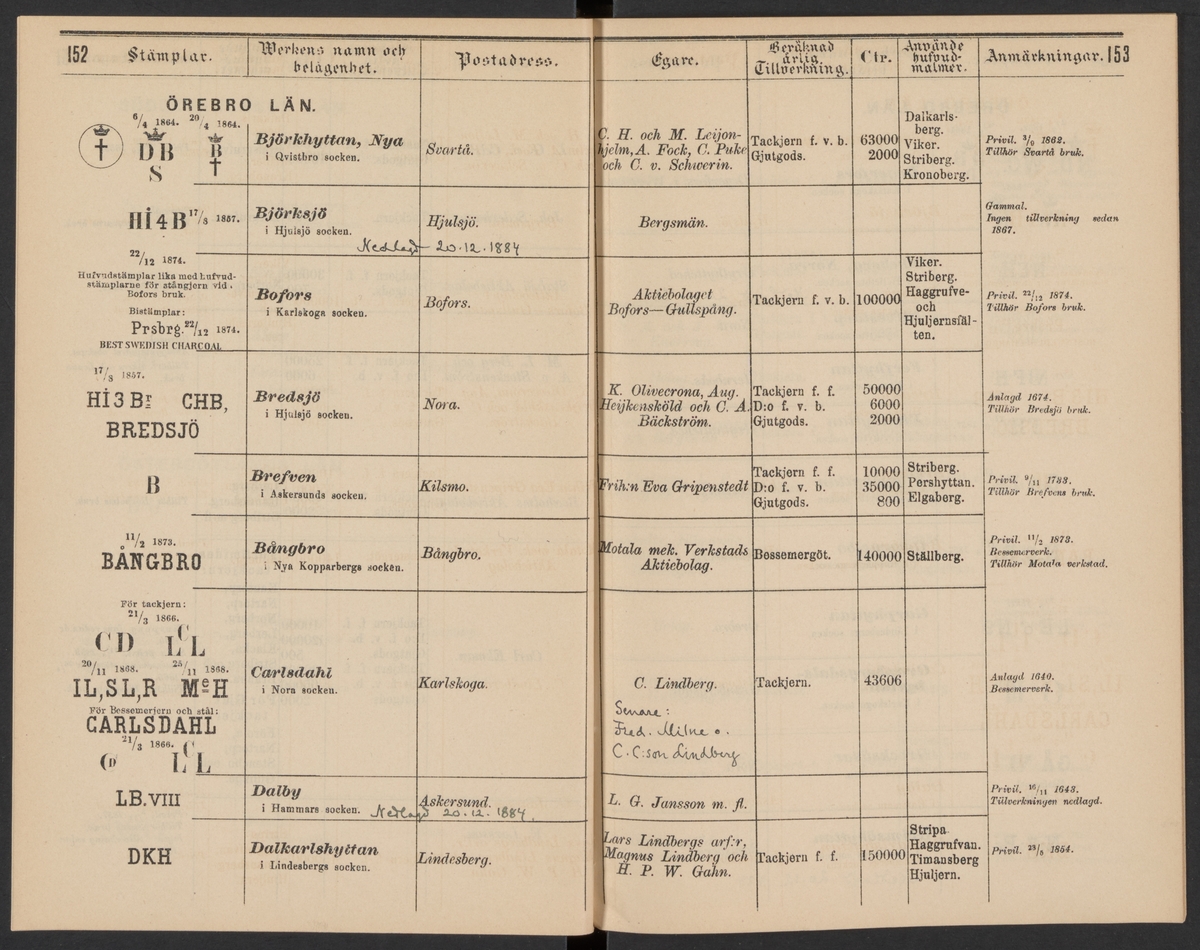 152
Stämplar.
Werkens namn och
belägenhet.
Postadress.
Egare.
Beräknad
årlig
Tillverkning.
Ctr.
Använde
hufvud-
malmer.
Anmärkningar.
153
ÖREBRO LÄN.
6/4 1864. 20/4 1864.
DB B
S
Björkhyttan, Nya
i Qvistbro socken.
Svartå.
C. H. och M. Leijon-
hjelm, A. Fock, C. Puke
och C. v. Schwerin.
Tackjern f. v. b.
Gjutgods.
63000
2000
Dalkarls-
berg.
Viker.
Striberg.
Kronoberg.
Privil. 3/9 1862.
Tillhör Svartå bruk.
Hi4B 17/8 1857.
Björksjö
i Hjulsjö socken.
Nedlagd 20.12.1884
Hjulsjö.
Bergsmän.
Gammal.
Ingen tillverkning sedan
1867.
22/12 1874.
Hufvudstämplar lika med hufvud-
stämplarne för stångjern vid
Bofors bruk.
Bistämplar:
Prsbrg. 22/12 1874.
BEST SWEDISH CHARCOAL
Bofors
i Karlskoga socken.
Bofors.
Aktiebolaget
Bofors—Gullspång.
Tackjern f. v. b.
100000
Viker.
Striberg.
Haggrufve-
och
Hjuljernsfäl-
ten.
Privil. 22/12 1874.
Tillhör Bofors bruk.
17/8 1857.
Hi3Br CHB,
BREDSJÖ
Bredsjö
i Hjulsjö socken.
Nora.
K. Olivecrona, Aug.
Heijkensköld och C. A.
Bäckström.
Tackjern f. f.
D:o f. v. b.
Gjutgods.
50000
6000
2000
Anlagd 1674.
Tillhör Bredsjö bruk.
B
Brefven
i Askersunds socken.
Kilsmo.
Frih:n Eva Gripenstedt
Tackjern f. f.
D:o f. v. b.
Gjutgods.
10000
35000
800
Striberg.
Pershyttan.
Elgaberg.
Privil. 9/11 1733.
Tillhör Brefvens bruk.
11/2 1873.
BÅNGBRO
Bångbro
i Nya Kopparbergs socken.
Bångbro.
Motala mek. Verkstads
Aktiebolag.
Bessemergöt.
140000
Ställberg.
Privil. 11/2 1873.
Bessemerverk.
Tillhör Motala verkstad.
För tackjern:
21/3 1866.
CD LCL
20/11 1868. 25/11 1868.
IL,SL,R MeH
För Bessemerjern och stål:
CARLSDAHL
21/3 1866.
CD LCL
Carlsdahl
i Nora socken.
Karlskoga.
C. Lindberg.
Senare:
Fred. Milne o.
C. C:son Lindberg
Tackjern.
43606
Anlagd 1640.
Bessemerverk.
LB.VIII
Dalby
i Hammars socken.
Nedlagd 20.12.1884.
Askersund.
L. G. Jansson m. fl.
Privil. 16/11 1643.
Tillverkningen nedlagd.
DKH
Dalkarlshyttan
i Lindesbergs socken.
Lindesberg.
Lars Lindbergs arf:r,
Magnus Lindberg och
H. P. W. Gahn.
Tackjern f. f.
150000
Stripa
Haggrufvan.
Timansberg
Hjuljern.
Privil. 23/8 1854.